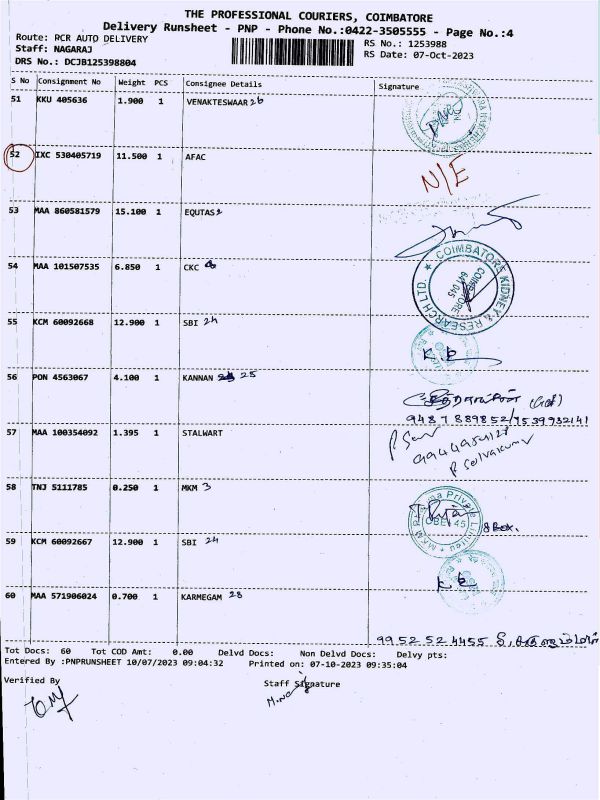 THE PROFESSIONAL COURIERS, COIMBATORE
Delivery Runsheet - PNP - Phone No.:0422-3505555 - Page No.:4
Route: RCR AUTO DELIVERY
RS No.: 1253988
Staff: NAGARAJ
RS Date: 07-Oct-2023
DRS No.: DCJB125398804
S No Consignment No Weight PCS Consignee Details Signature
51 KKU 405636 1.900 1 VENAKTESWAAR 26
52 IXC 530405719 11.500 1 AFAC N/E
53 MAA 860581579 15.100 1 EQUTAS 2
54 MAA 101507535 6.850 1 CKC
COIMBATORE KIDNEY & RESEARCH LTD.
COIMBATORE
641 045
55 KCM 60092668 12.900 1 SBI 24
K. E
56 PON 4563067 4.100 1 KANNAN 25
9487889852/7539932141
57 MAA 100354092 1.395 1 STALWART
P Selvakumar
58 TNJ 5111785 0.250 1 MKM 3
CBE-45
8 Box.
59 KCM 60092667 12.900 1 SBI 24
K. E
60 MAA 571906024 0.700 1 KARMEGAM 28
99 52 52 4455
Tot Docs: 60 Tot COD Amt: 0.00 Delvd Docs: Non Delvd Docs: Delvy pts:
Entered By :PNPRUNSHEET 10/07/2023 09:04:32 Printed on: 07-10-2023 09:35:04
Verified By Staff Signature